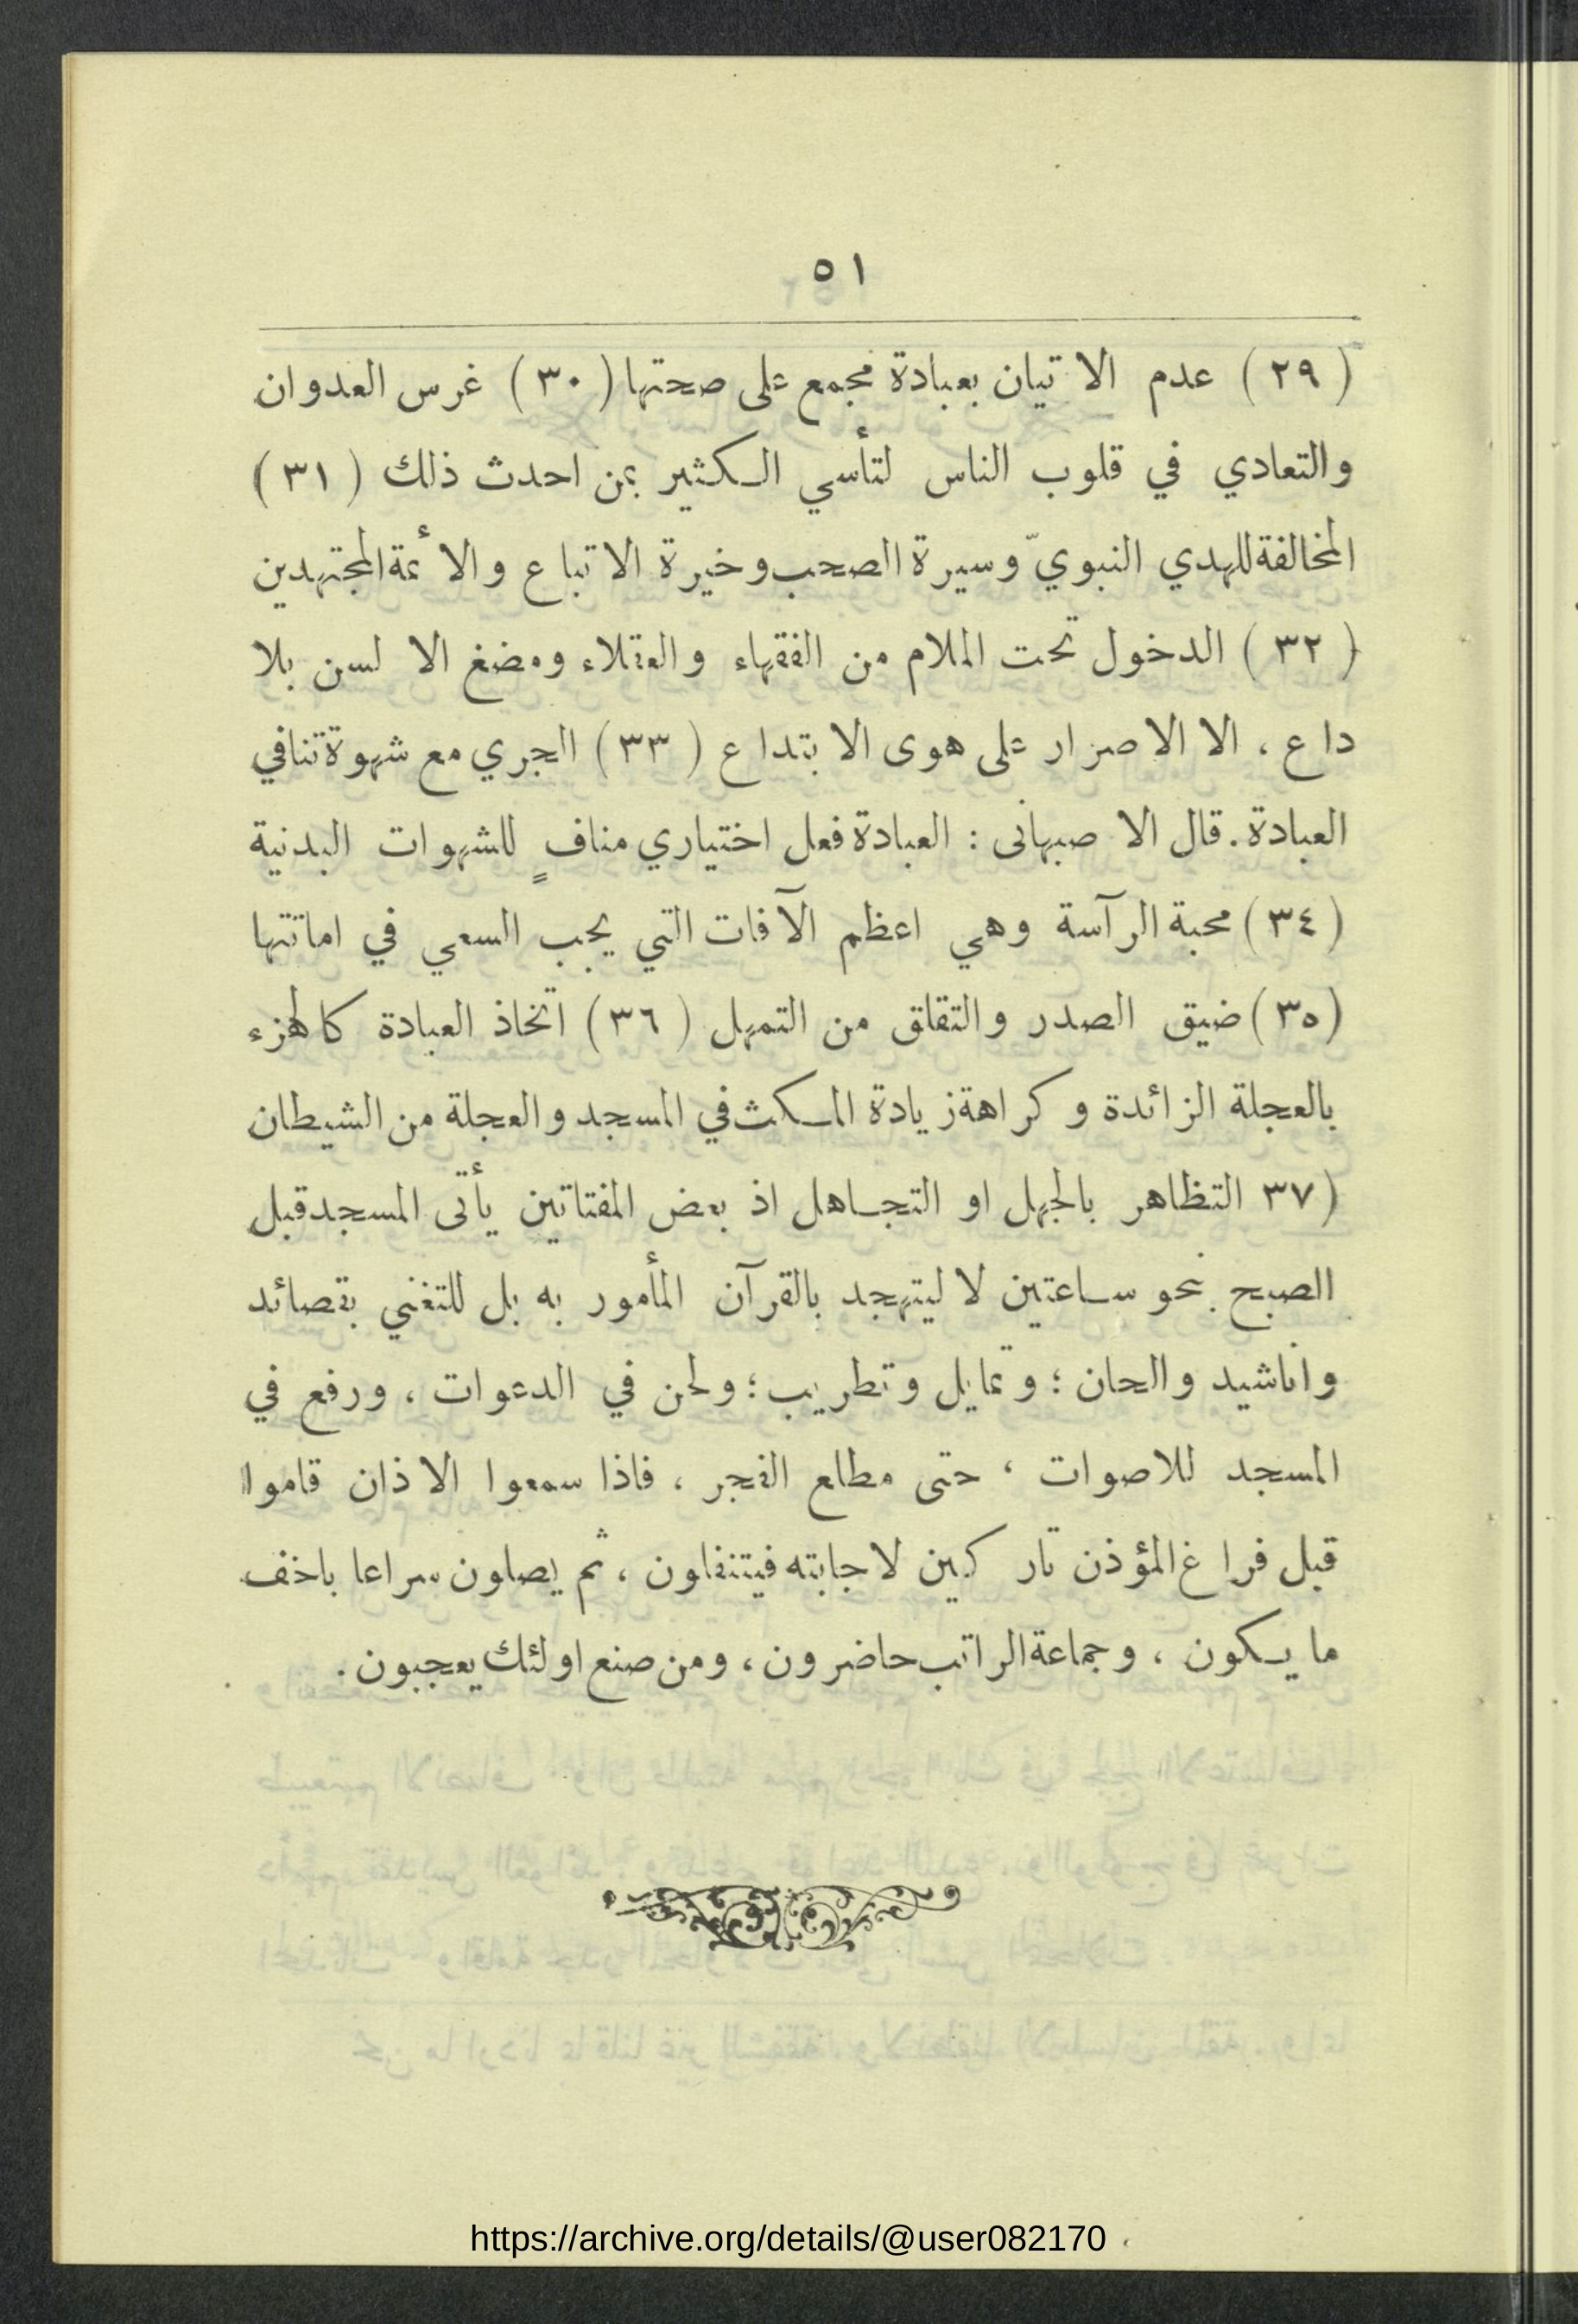 ٥١
(٢٩) عدم الاتيان بعبادة مجمع على صحتها (٣٠) غرس العدوان
والتعادي في قلوب الناس لتأسي الكثير بمن احدث ذلك (٣١)
المخالفة للهدي النبويّ وسيرة الصحب وخيرة الاتباع والأئمة المجتهدين
(٣٢) الدخول تحت الملام من الفقهاء والعقلاء ومضغ الالسن بلا
داع، الا الاصرار على هوى الابتداع (٣٣) الجري مع شهوة تنافي
العبادة. قال الاصبهانى : العبادة فعل اختياري منافٍ للشهوات البدنية
(٣٤) محبة الرآسة وهي اعظم الآفات التي يجب السعي في اماتتها
(٣٥) ضيق الصدر والتقلق من التمهل (٣٦) اتخاذ العبادة كالهزء
بالعجلة الزائدة وكراهة زيادة المكث في المسجد والعجلة من الشيطان
(٣٧ التظاهر بالجهل او التجاهل اذ بعض المفتاتين يأتى المسجد قبل
الصبح بنحو ساعتين لا ليتهجد بالقرآن المأمور به بل للتغني بقصائد
واناشيد والحان ؛ وتمايل وتطريب ؛ ولحن في الدعوات ، ورفع في
المسجد للاصوات ، حتى مطلع الفجر ، فاذا سمعوا الاذان قاموا
قبل فراغ المؤذن تاركين لاجابته فيتنفلون ، ثم يصلون سراعا باخف
ما يكون ، وجماعة الراتب حاضرون ، ومن صنع اولئك يعجبون .
https://archive.org/details/@user082170